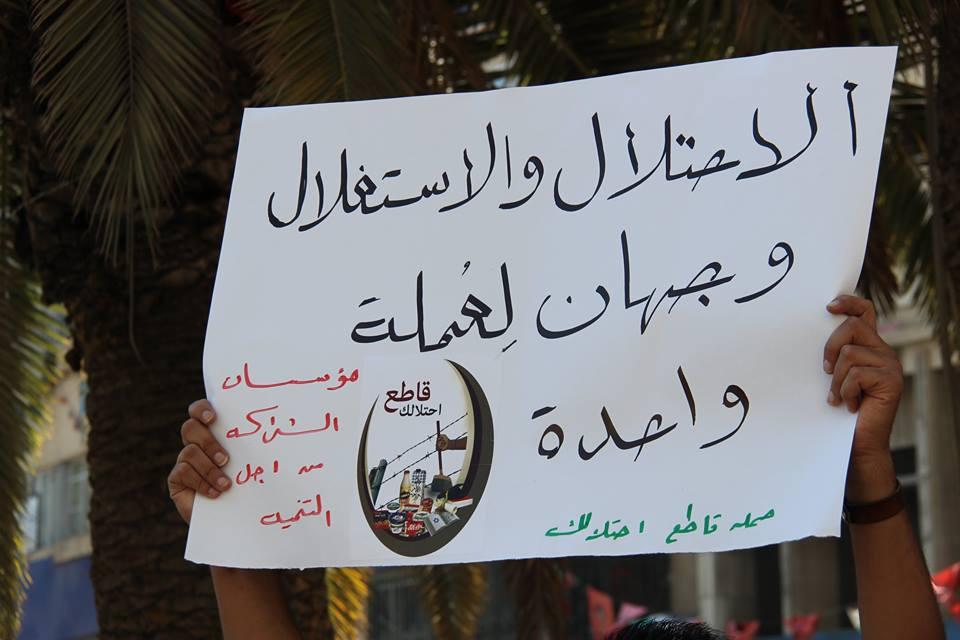 الاحتلال والاستغلال
وجهان لِعُملة
واحدة
مؤسسات
الشراكه
من اجل
التنميه
قاطع
احتلالك
حمله قاطع احتلالك